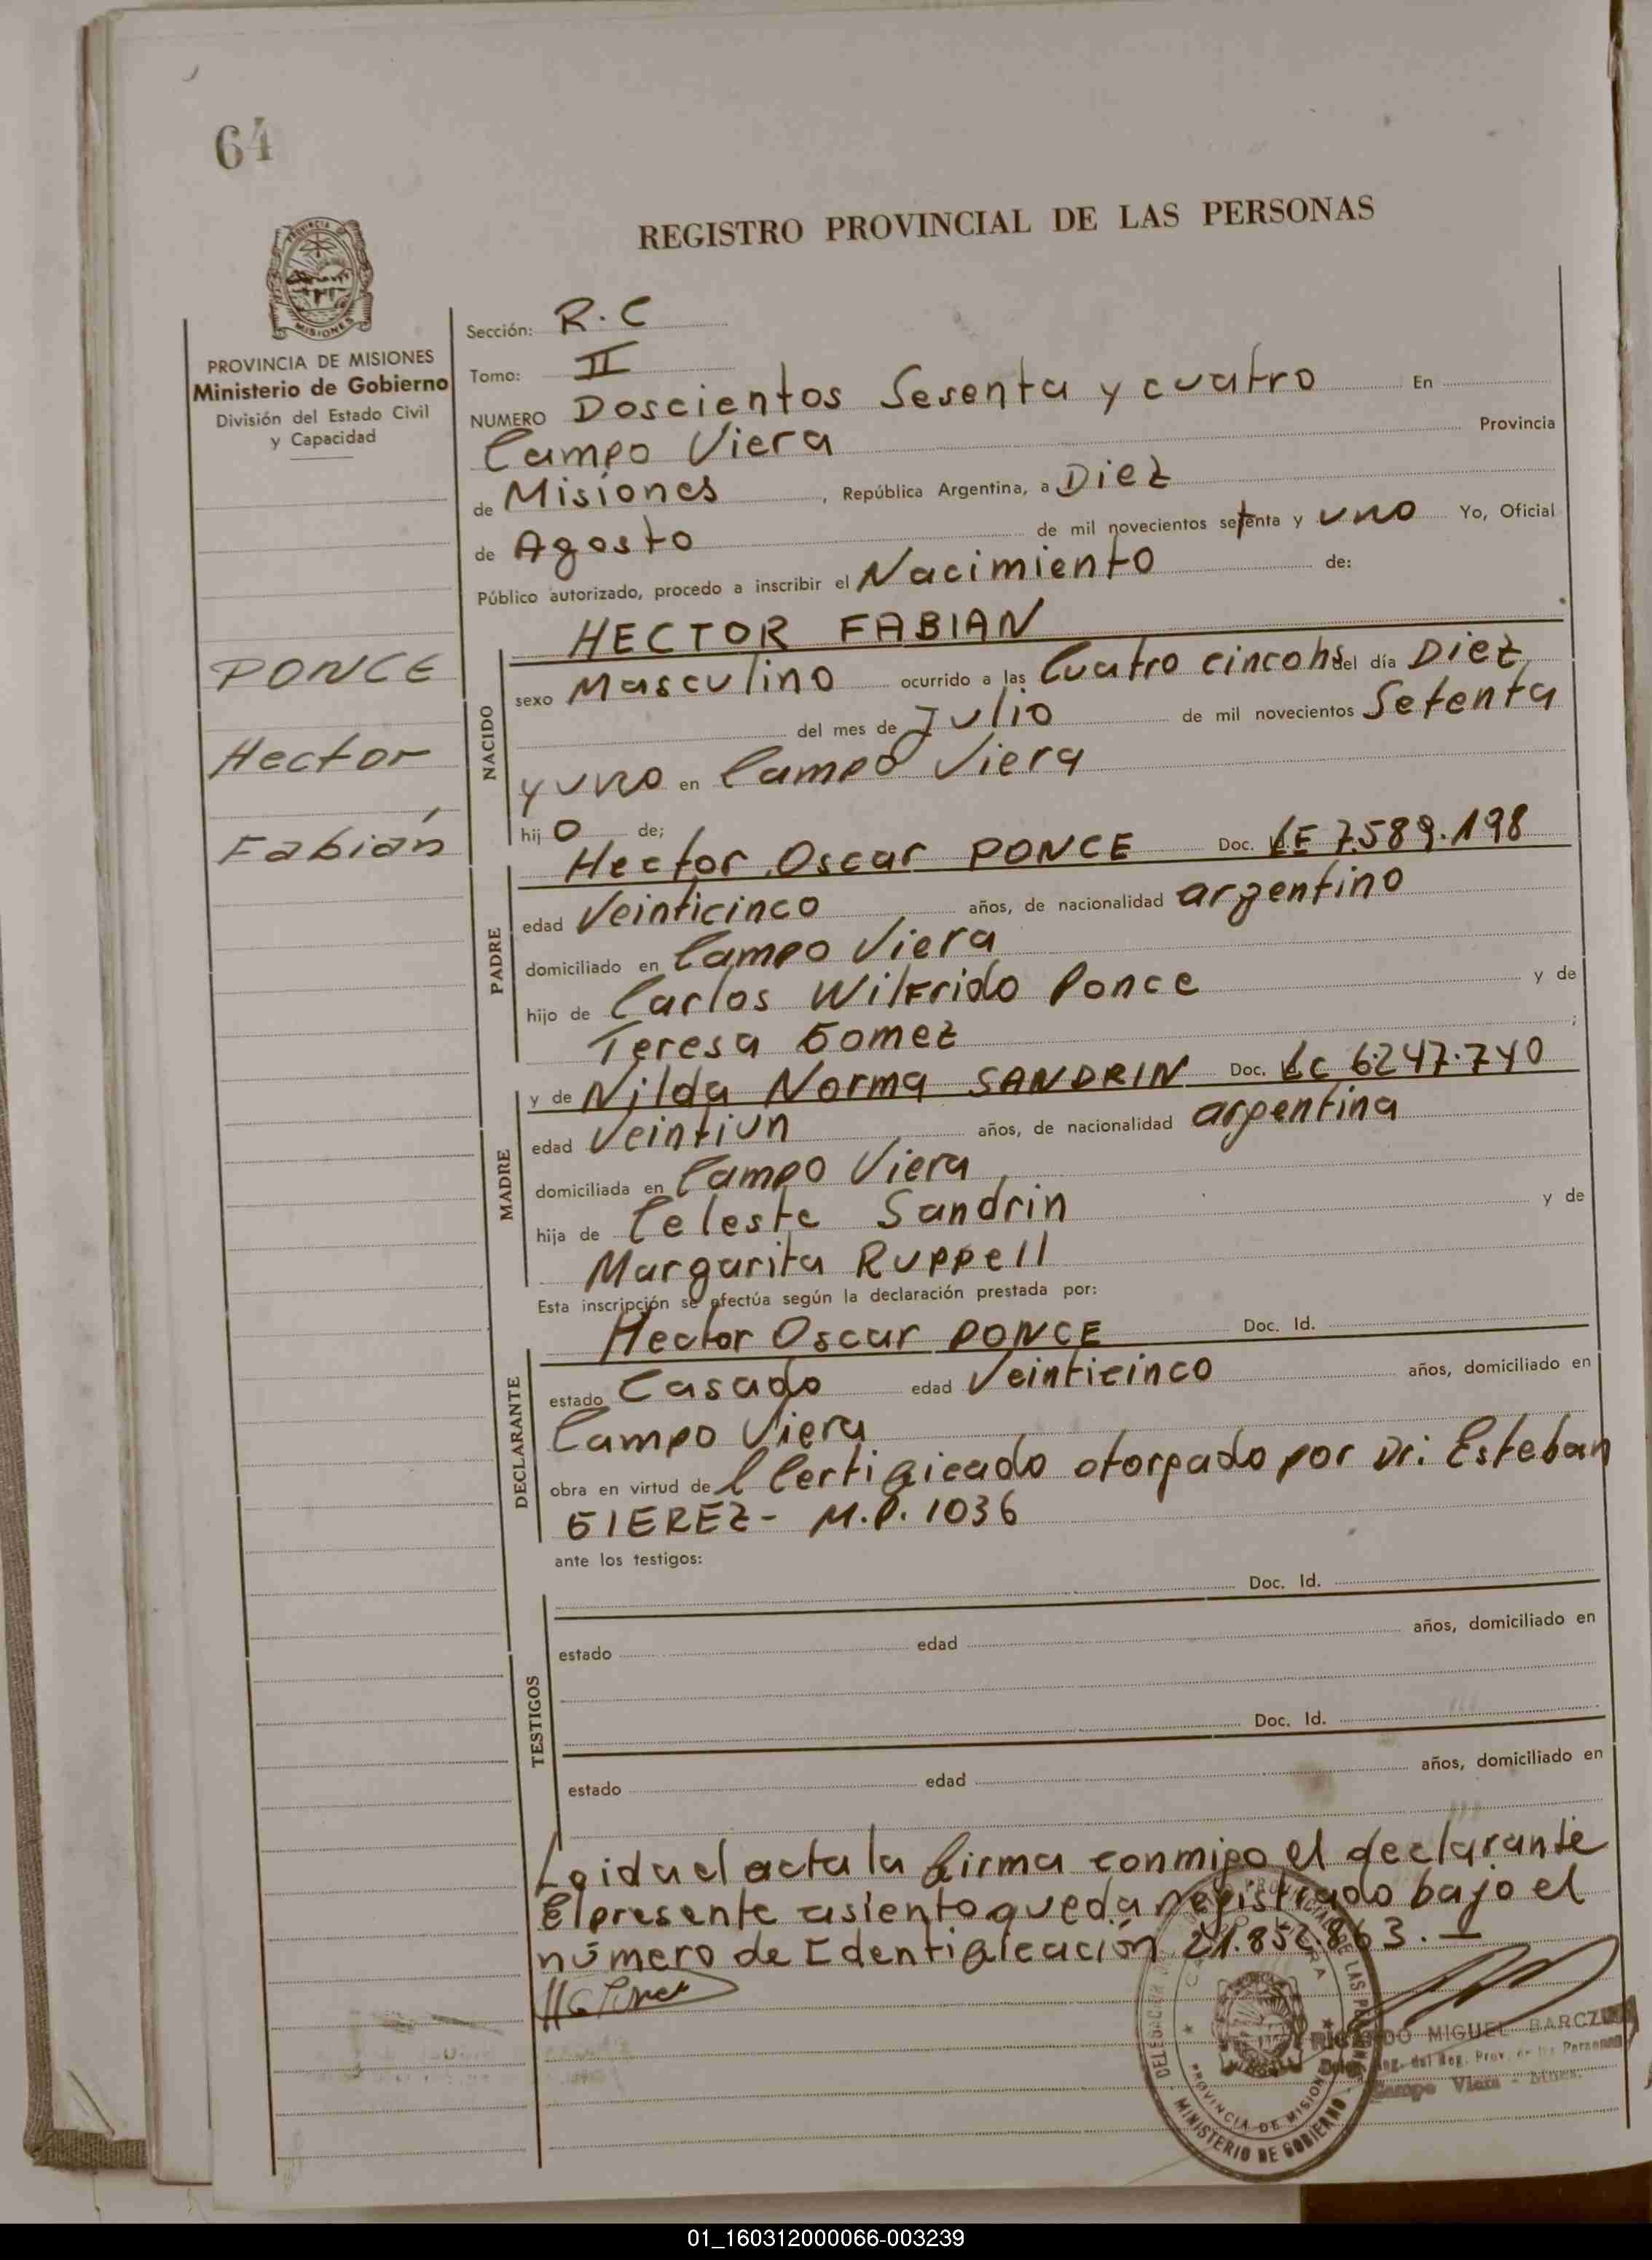 64
REGISTRO PROVINCIAL DE LAS PERSONAS
PROVINCIA DE MISIONES
Ministerio de Gobierno
División del Estado Civil
y Capacidad
PONCE
Hector
Fabián
Sección: R.C
Tomo: II
NUMERO Doscientos Sesenta y cuatro En
Campo Viera Provincia
de Misiones, República Argentina, a Diez
de Agosto de mil novecientos setenta y uno Yo, Oficial
Público autorizado, procedo a inscribir el Nacimiento de:
HECTOR FABIAN
NACIDO
sexo Masculino ocurrido a las Cuatro cinco hs del día Diez
del mes de Julio de mil novecientos Setenta
y uno en Campo Viera
hijo de;
PADRE
Hector Oscar PONCE Doc. LE 7.589.198
edad Veinticinco años, de nacionalidad argentino
domiciliado en Campo Viera
hijo de Carlos Wilfrido Ponce y de
Teresa Gomez;
MADRE
y de Nilda Norma SANDRIN Doc. LC 6.247.740
edad Veintiun años, de nacionalidad argentina
domiciliada en Campo Viera
hija de Celeste Sandrin y de
Margarita Ruppell
Esta inscripción se efectúa según la declaración prestada por:
DECLARANTE
Hector Oscar PONCE Doc. Id.
estado Casado edad Veinticinco años, domiciliado en
Campo Viera
obra en virtud del Certificado otorgado por Dr. Esteban
GIEREZ- M.P. 1036
ante los testigos:
TESTIGOS
Doc. Id.
estado edad años, domiciliado en
Doc. Id.
estado edad años, domiciliado en
Leida el acta la firma conmigo el declarante
El presente asiento queda registrado bajo el
número de Identificación 21.852.863.-
PROVINCIA DE MISIONES
MINISTERIO DE GOBIERNO
MIGUEL
Campo Viera - Mnes.
01_160312000066-003239